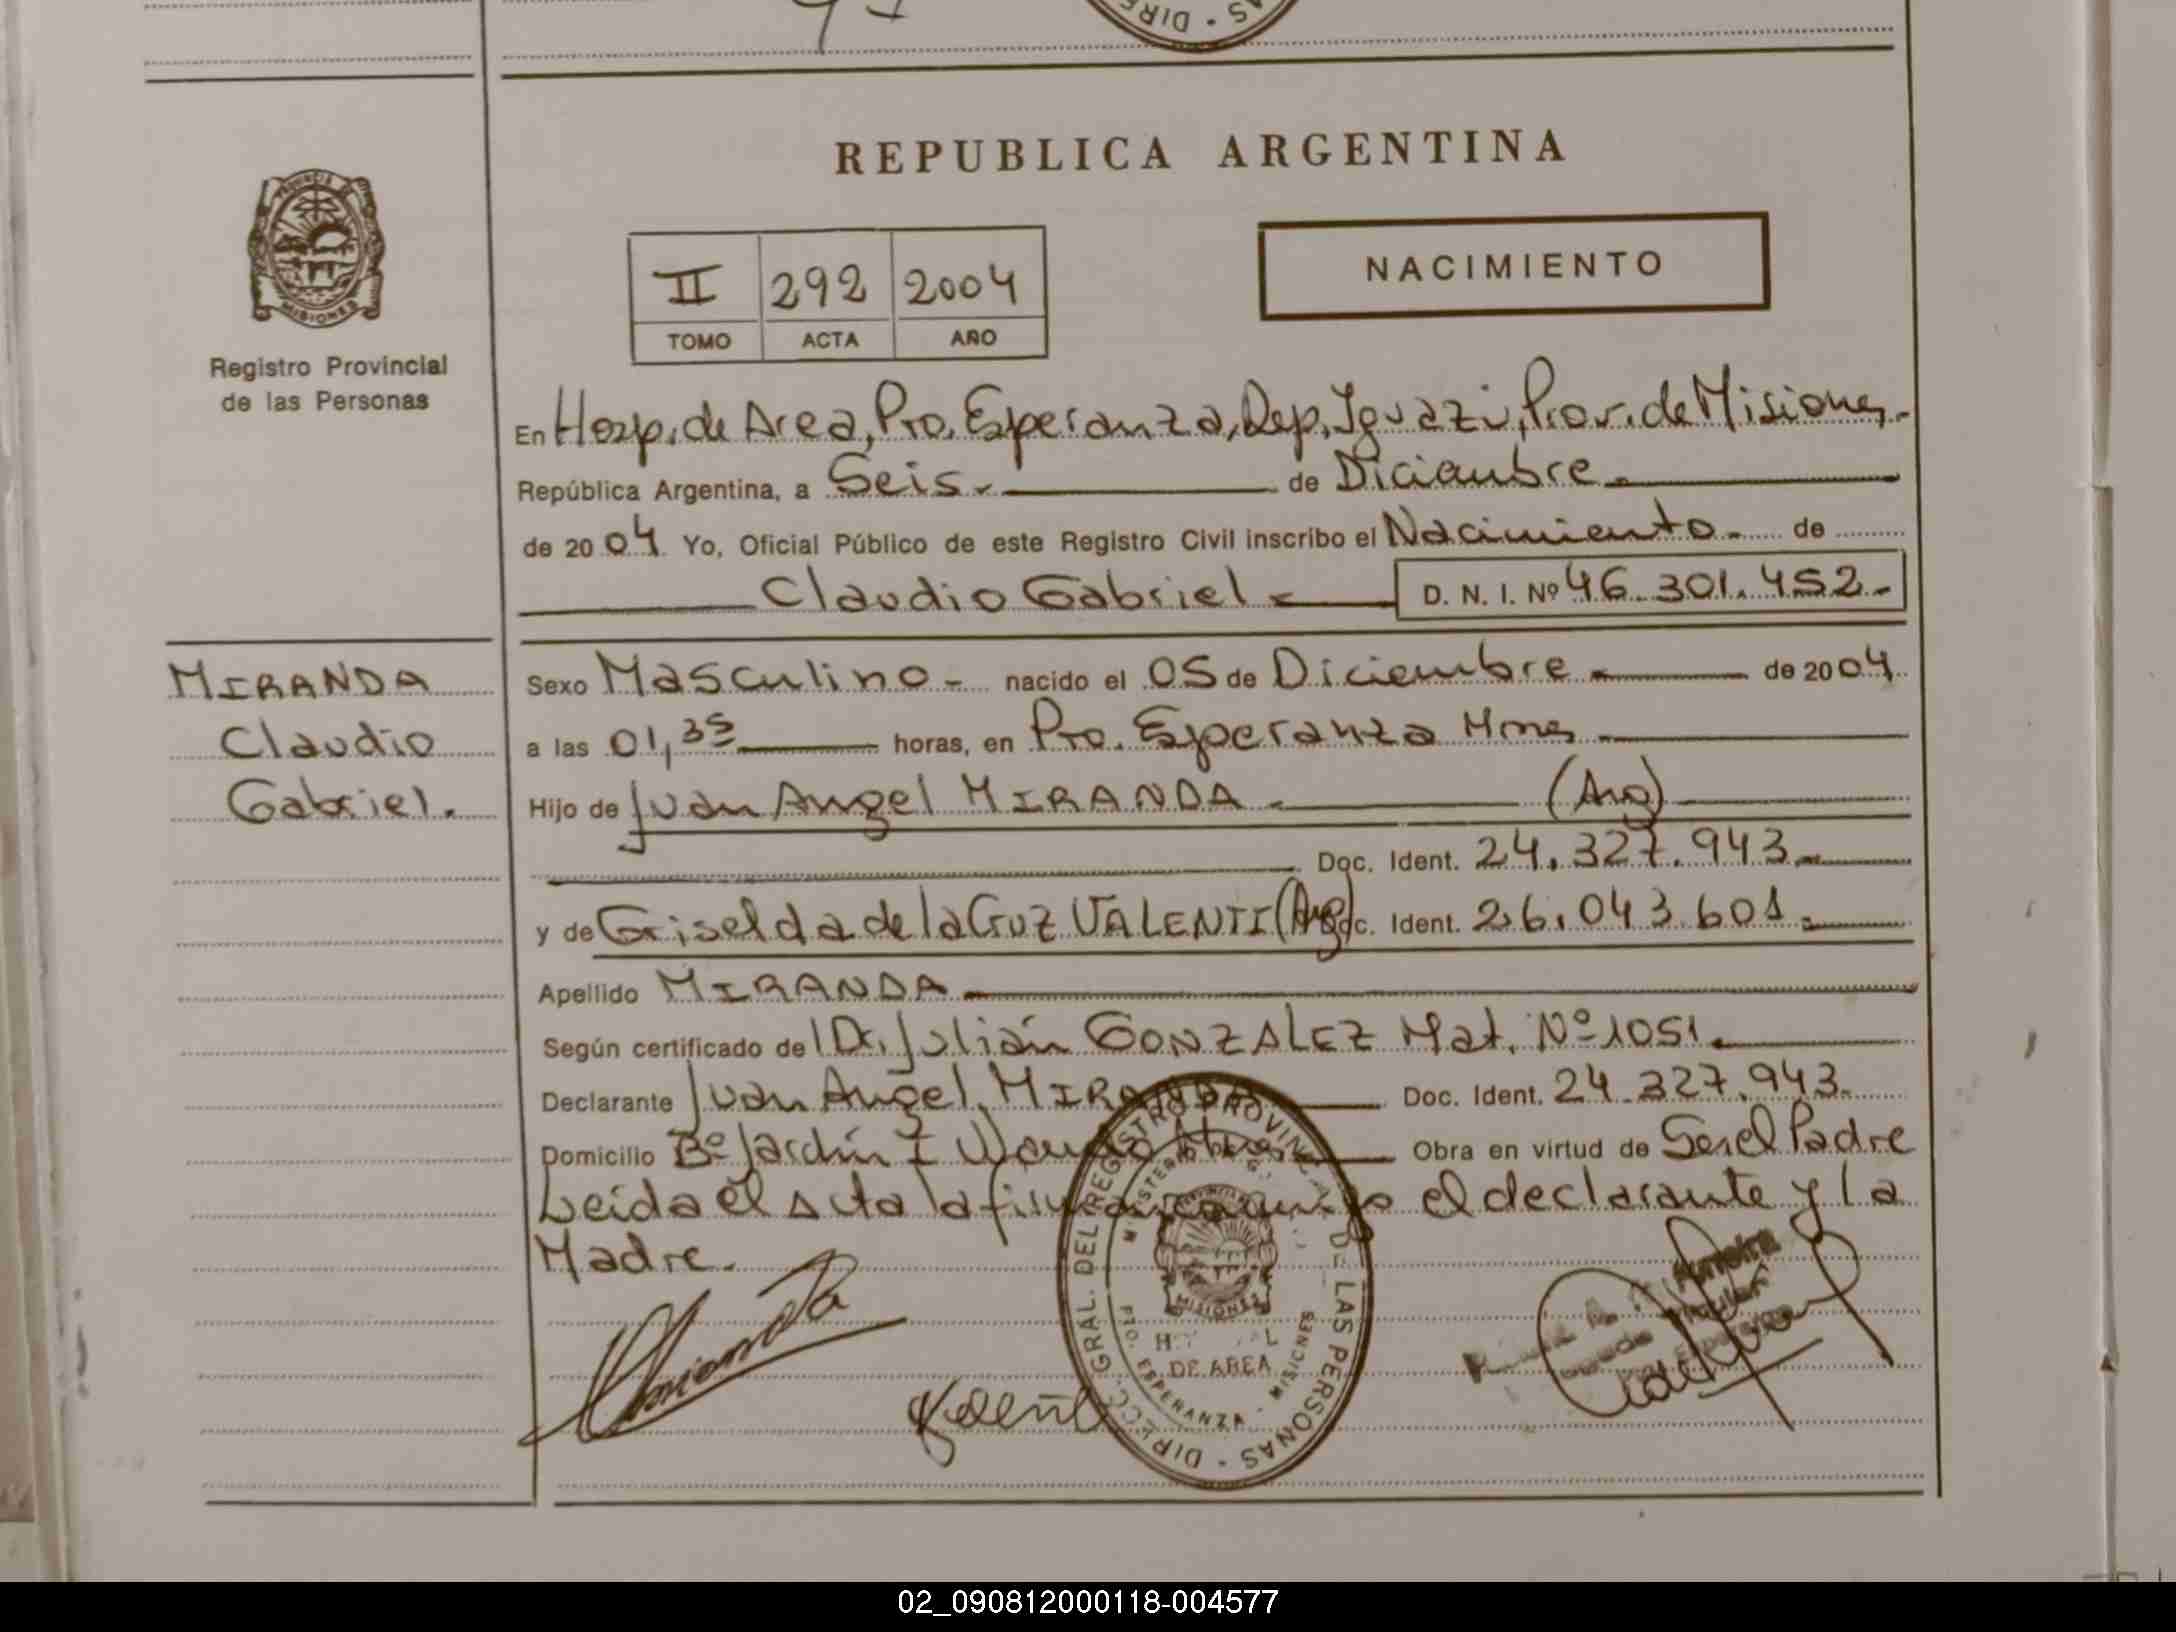 REPUBLICA ARGENTINA
NACIMIENTO
II 292 2004
TOMO ACTA AÑO
PROVINCIA DE
MISIONES
Registro Provincial
de las Personas
En Hosp. de Area, Pto. Esperanza, Dep. Iguazú, Prov. de Misiones.-
República Argentina, a Seis.- de Diciembre.-
de 2004 Yo, Oficial Público de este Registro Civil inscribo el Nacimiento.- de
Claudio Gabriel.- D. N. I. Nº 46.301.452.-
MIRANDA
Claudio
Gabriel.
Sexo Masculino.- nacido el 05 de Diciembre.- de 2004
a las 01,35 horas, en Pto. Esperanza Mnes.-
Hijo de Juan Angel MIRANDA.- (Arg)
Doc. Ident. 24.327.943.-
y de Griselda de la Cruz VALENTI (Arg) Doc. Ident. 26.043.601.-
Apellido MIRANDA
Según certificado del Dr. Julián GONZALEZ Mat. Nº 1051.-
Declarante Juan Angel MIRANDA Doc. Ident. 24.327.943.-
Domicilio Bº Jardín I Wanda Mnes. Obra en virtud de Ser el Padre
Leida el acta la firman conmigo el declarante y la
Madre.
DIRECC. GRAL. DEL REGISTRO PROVINC. DE LAS PERSONAS
MISIONES
DE AREA
PTO. ESPERANZA - MISIONES
02_090812000118-004577